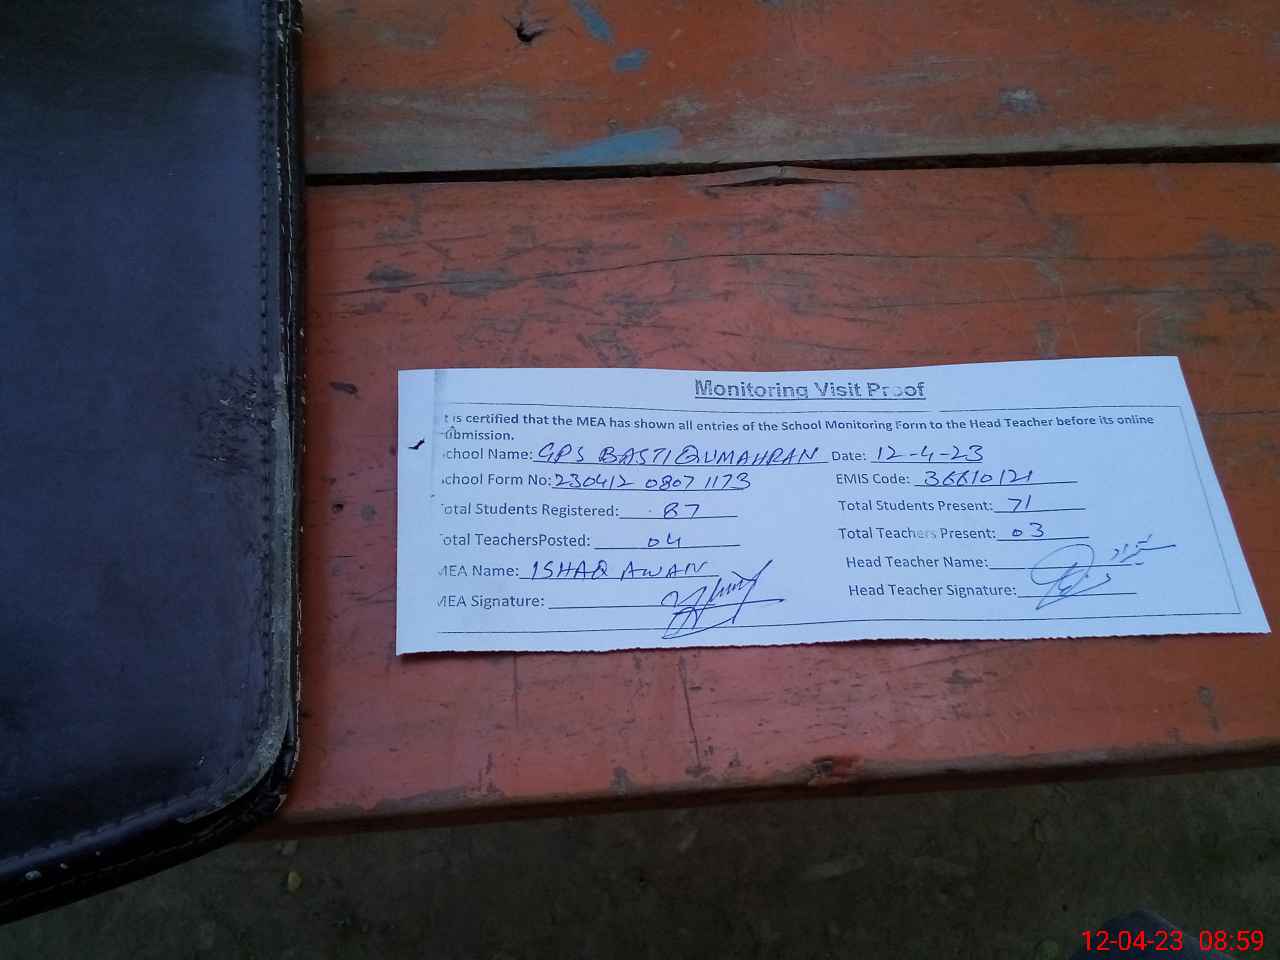 Monitoring Visit Proof
t is certified that the MEA has shown all entries of the School Monitoring Form to the Head Teacher before its online
ubmission.
chool Name: GPS BASTI QUMAHRAN Date: 12-4-23
chool Form No: 230412 08071173 EMIS Code: 36610121
otal Students Registered: 87 Total Students Present: 71
otal TeachersPosted: 04 Total Teachers Present: 03
MEA Name: ISHAQ AWAN Head Teacher Name:
MEA Signature: Head Teacher Signature:
12-04-23 08:59